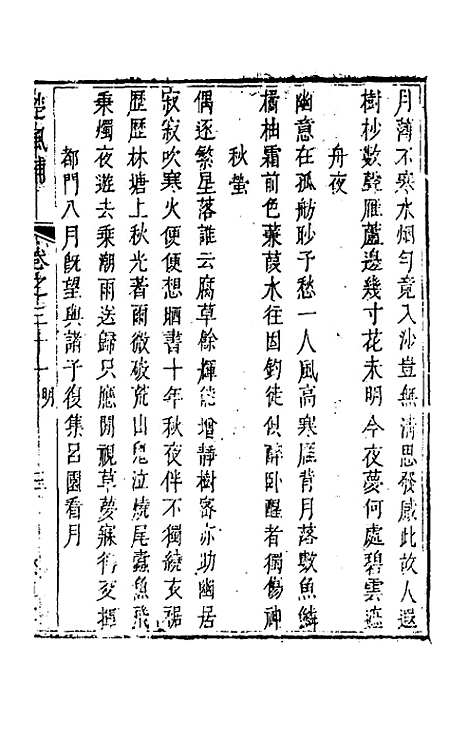 月薄不寒水烟勻竟入沙豈無清思發感此故人遐
樹杪數聲雁蘆邊幾寸花未明今夜夢何處碧雲遮
舟夜
幽意在孤舫眇予愁一人風高寒雁背月落數魚鱗
橘柚霜前色葉葭水往因釣徒似醉臥醒者獨傷神
秋螢
偶逐繁星落誰云腐草餘輝能增靜樹寒亦助幽居
寂寂吹寒火便便想曬書十年秋夜伴不獨繞衣裾
歷歷林塘上秋光著爾微破荒山鬼泣燒尾蠹魚飛
乘燭夜遊去乘潮雨送歸只應閒視草夢寐得交揮
都門八月既望與諸子復集呂園看月
楚風補
卷之三十一 明